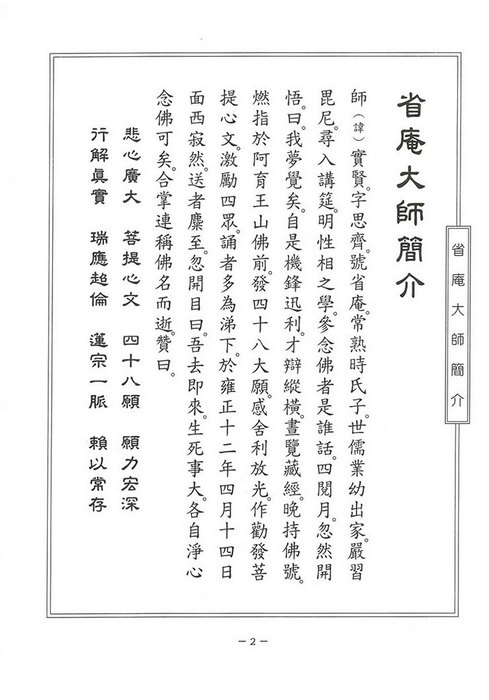 省庵大師簡介
省庵大師簡介
師(諱)實賢。字思齊。號省庵。常熟時氏子。世儒業幼出家。嚴習
毘尼。尋入講筵。明性相之學。參念佛者是誰話。四閱月。忽然開
悟。曰。我夢覺矣。自是機鋒迅利。才辯縱橫。晝覽藏經。晚持佛號。
燃指於阿育王山佛前。發四十八大願。感舍利放光。作勸發菩
提心文。激勵四眾。誦者多為涕下。於雍正十二年四月十四日
面西寂然。送者麇至。忽開目曰。吾去即來。生死事大。各自淨心
念佛可矣。合掌連稱佛名而逝。贊曰。
悲心廣大 菩提心文 四十八願 願力宏深
行解真實 瑞應超倫 蓮宗一脈 賴以常存
－2－